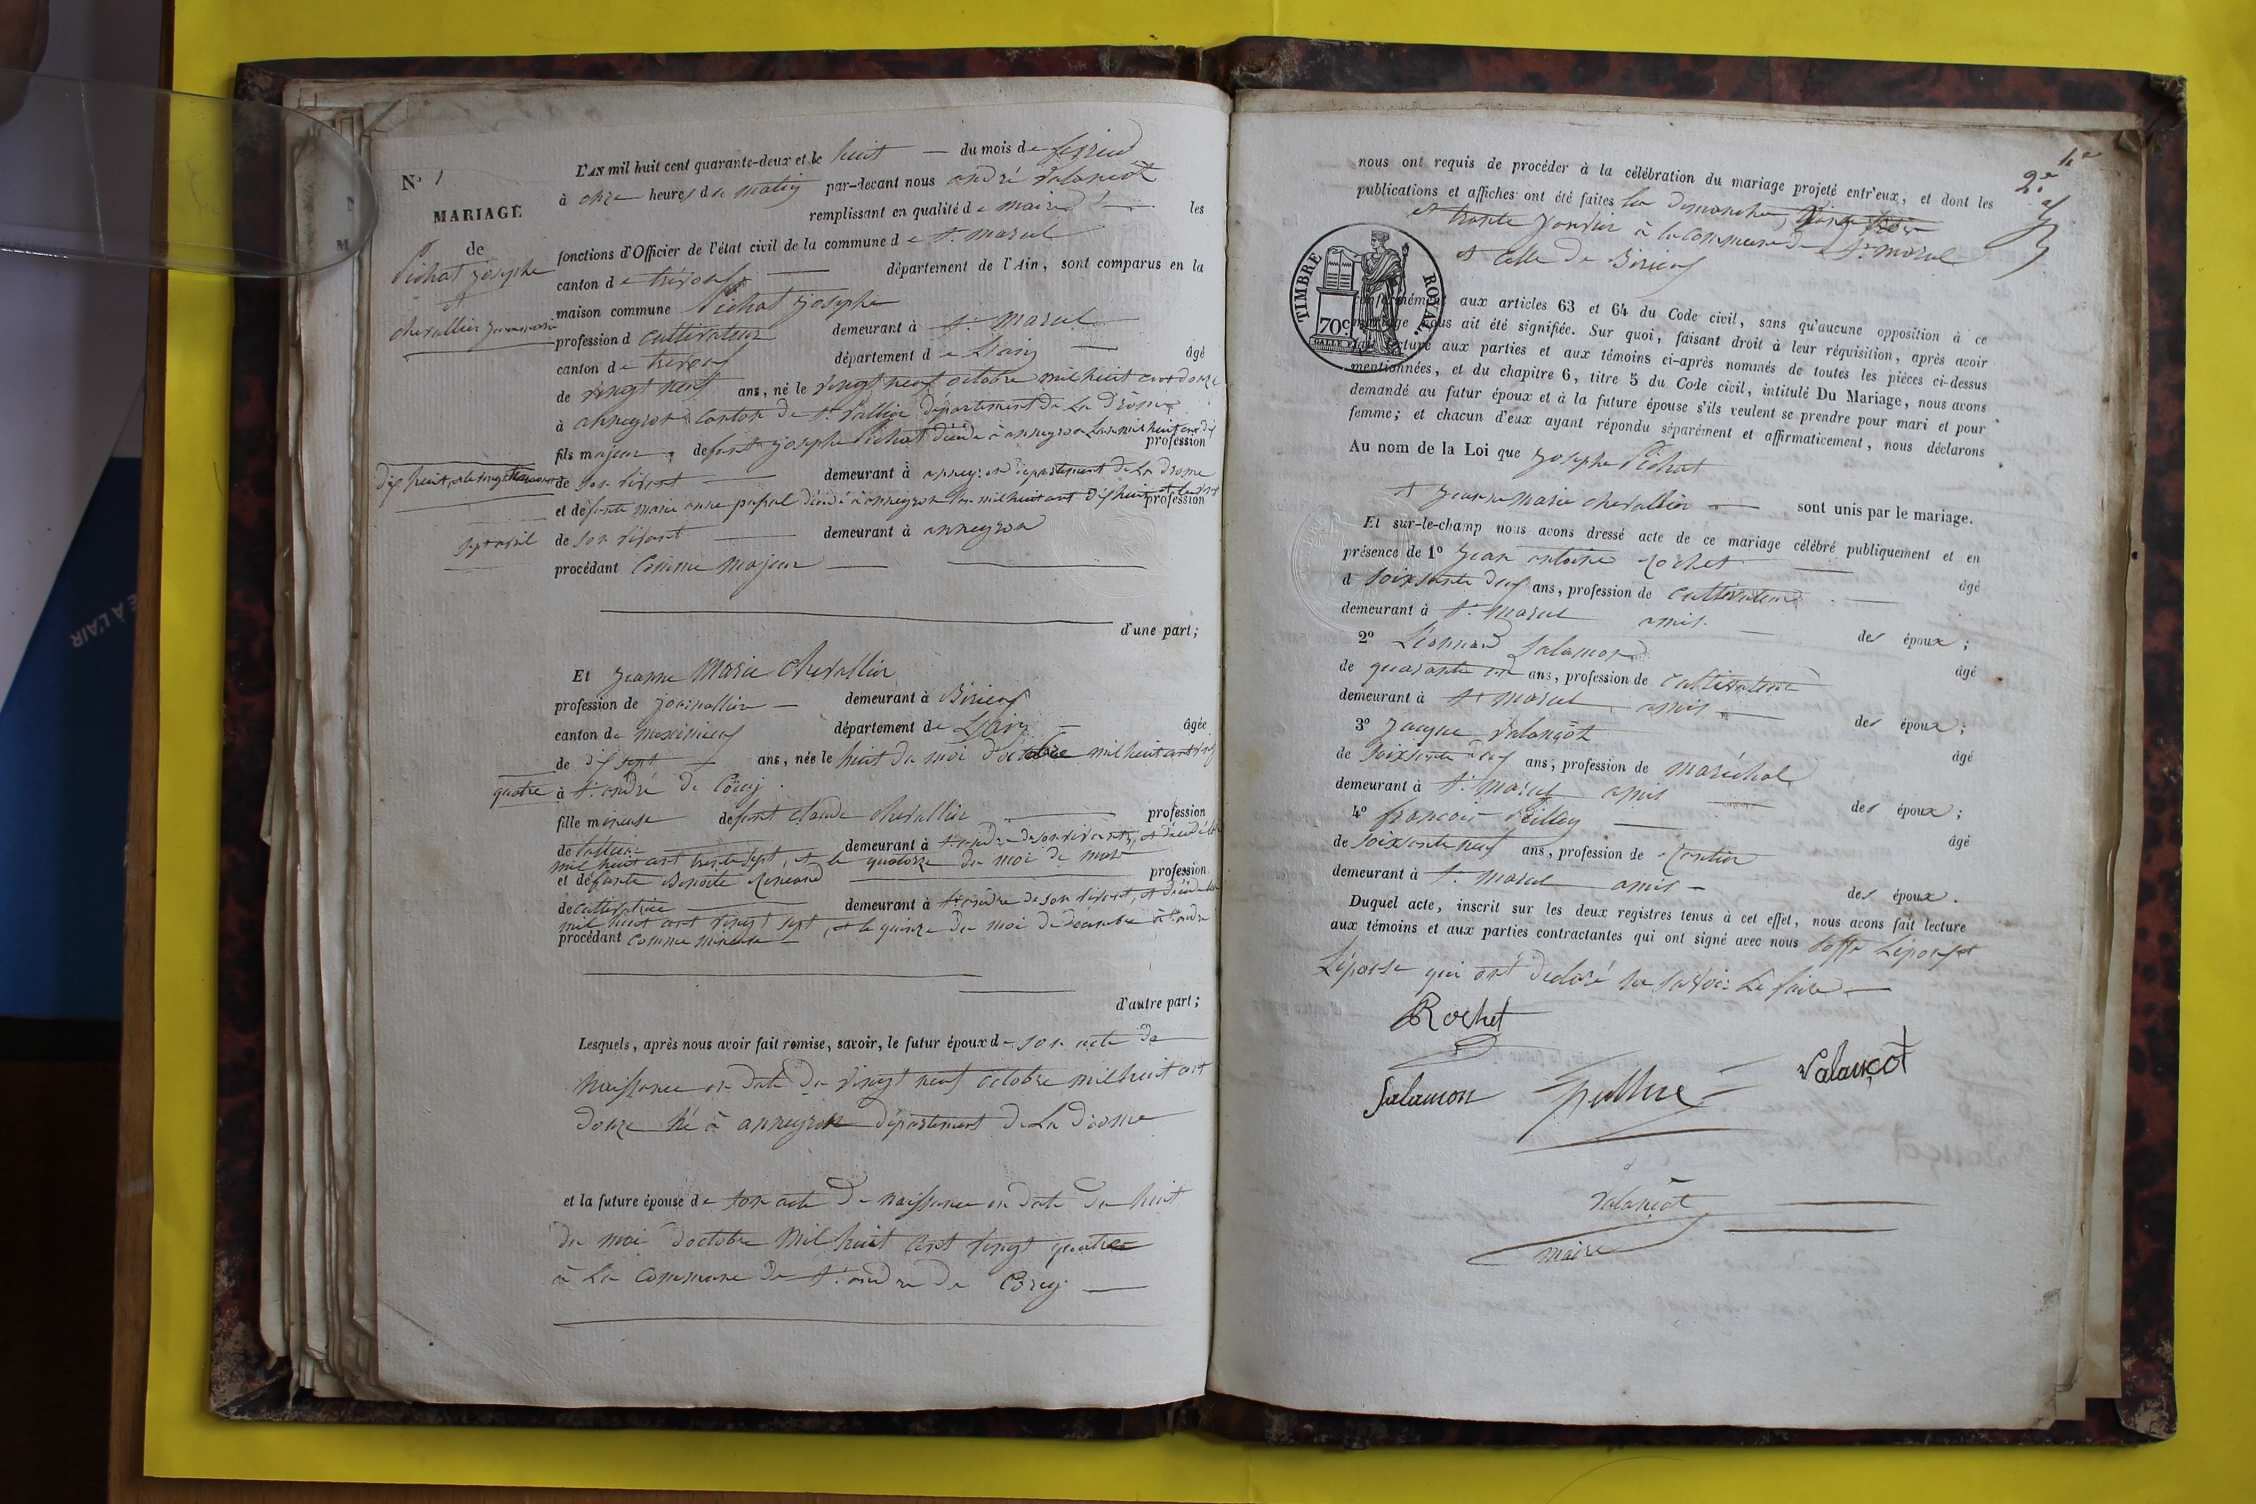 N° 1
MARIAGE
de
Pichat Josephe
et
chevallier jeanne marie
L'AN mil huit cent quarante-deux et le huit du mois de fevrier
à onze heures du matin par-devant nous andré Valançot
remplissant en qualité de maire les
fonctions d'Officier de l'état civil de la commune de St marcel
canton de trévoux département de l'Ain, sont comparus en la
maison commune Pichat Josephe
profession d cultivateur demeurant à St marcel
canton de trévoux département de L'ain âgé
de vingt neuf ans, né le vingt neuf octobre mil huit cent douze
à anneyron canton de St Vallier département de La Drôme
fils majeur defunt josephe Pichat décédé à anneyron L'an mil huit cent dix profession
de son vivant demeurant à anneyron département de La Drome
et défunte marie anne décédé à anneyron L'an mil huit cent dix huit et le vingt profession
sept avril
de son vivant demeurant à anneyron
procédant Comme majeur
d'une part;
Et Jeanne Marie Chevallier
profession de journallier demeurant à Birieux
canton de meximieux département de L'Ain âgée
de dix sept ans, née le huit du moi d'octobre mil huit cent vingt
quatre à St andré de Corcy
fille mineuse defunt claude chevallier profession
de demeurant à St andre de son vivant, et décédé L'an
mil huit cent trente sept, et le quatorze du moi de mars
et défunte Benoite profession
de cultivatrice demeurant à St andre de son vivant, et décédé L'an
mil huit cent vingt sept, et le quinze du moi de decembre à St andre
procédant comme mineuse
d'autre part;
Lesquels, après nous avoir fait remise, savoir, le futur époux de son acte de
Naissance en date du vingt neuf octobre mil huit cent
douze né à anneyron département de La drome
et la future épouse de son acte de naissance en date du huit
du moi d'octobre Mil huit cent vingt quatre
à La Commune de St andre de Corcy
2e
nous ont requis de procéder à la célébration du mariage projeté entr'eux, et dont les
publications et affiches ont été faites les dimanches vingt trois
et trente Janvier à la commune de St marcel
et celle de Birieux
TIMBRE ROYAL.
70c
conformément aux articles 63 et 64 du Code civil, sans qu'aucune opposition à ce
mariage nous ait été signifiée. Sur quoi, faisant droit à leur réquisition, après avoir
fait lecture aux parties et aux témoins ci-après nommés de toutes les pièces ci-dessus
mentionnées, et du chapitre 6, titre 5 du Code civil, intitulé Du Mariage, nous avons
demandé au futur époux et à la future épouse s'ils veulent se prendre pour mari et pour
femme; et chacun d'eux ayant répondu séparément et affirmativement, nous déclarons
Au nom de la Loi que Josephe Pichat
et Jeanne Marie chevallier sont unis par le mariage.
Et sur-le-champ nous avons dressé acte de ce mariage célébré publiquement et en
présence de 1° Jean antoine Rochet âgé
d soixsante deux ans, profession de cultivateur
demeurant à St marcel amis des époux;
2° Leonnard Salamon âgé
de quarante un ans, profession de cultivateur
demeurant à St marcel amis des époux;
3° Jacque Valançot âgé
de soixsante deux ans, profession de maréchal
demeurant à St marcel amis des époux;
4° françois âgé
de soixsente neuf ans, profession de Rentier
demeurant à St marcel amis des époux.
Duquel acte, inscrit sur les deux registres tenus à cet effet, nous avons fait lecture
aux témoins et aux parties contractantes qui ont signé avec nous soffe L'époux et
L'épouse qui ont declaré ne savoir Le faire
Rochet
Salamon Valançot
Valançot
maire